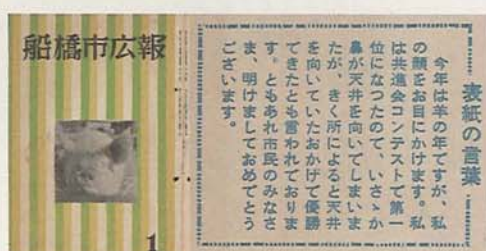 船橋市広報
1
表紙の言葉
今年は羊の年ですが、私
の顔をお目にかけます。私
は共進会コンテストで第一
位になつたので、いさゝか
鼻が天井を向いてしまいま
したが、きく所によると天井
を向いていたおかげで優勝
できたとも言われておりま
す。ともあれ市民のみなさ
ま、明けましておめでとう
ございます。